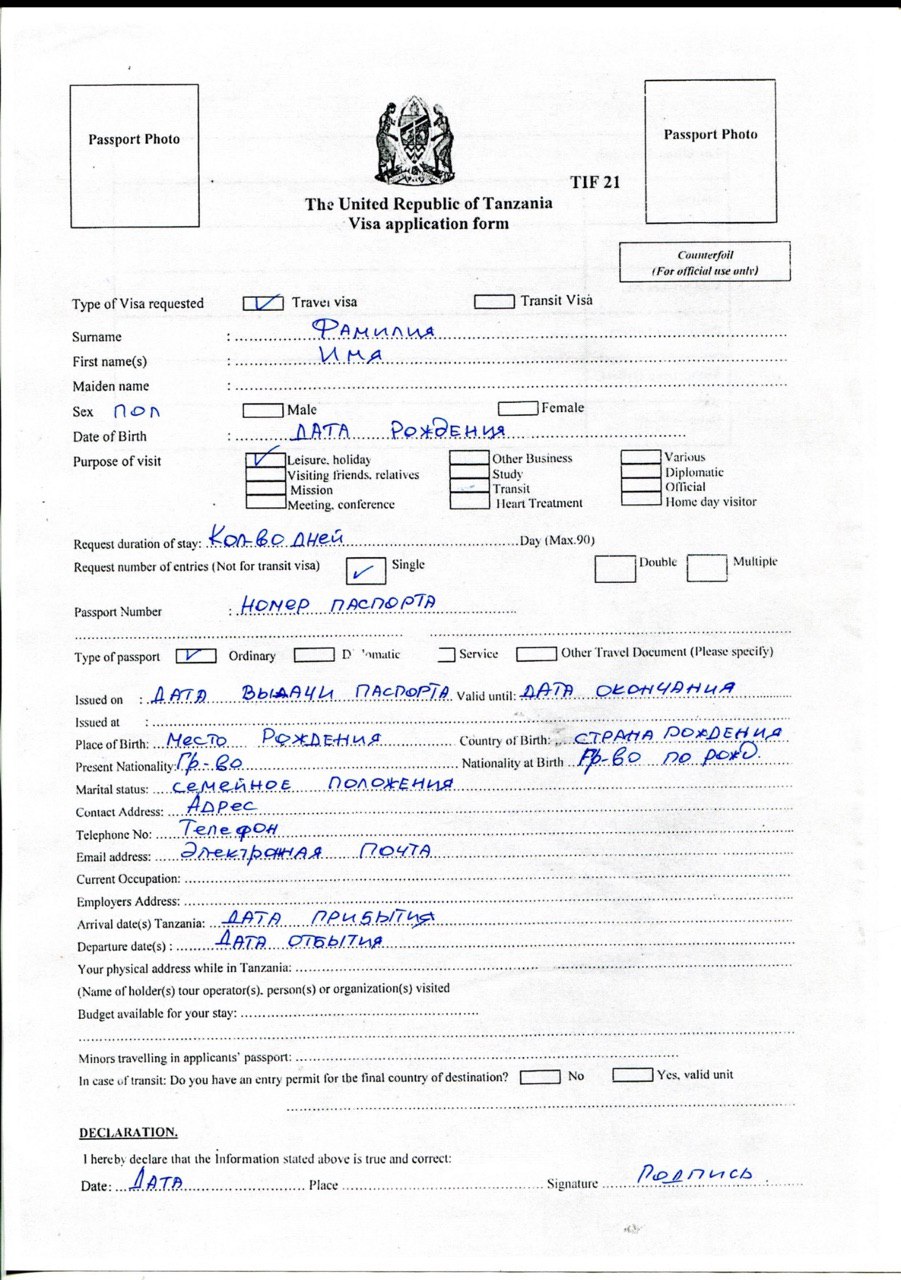 Passport Photo
Passport Photo
TIF 21
The United Republic of Tanzania
Visa application form
Counterfoil
(For official use only)
Type of Visa requested Travel visa Transit Visa
Surname : ФАМИЛИЯ
First name(s) : ИМЯ
Maiden name :
Sex ПОЛ Male Female
Date of Birth : ДАТА РОЖДЕНИЯ
Purpose of visit Leisure, holiday Other Business Various
Visiting friends, relatives Study Diplomatic
Mission Transit Official
Meeting, conference Heart Treatment Home day visitor
Request duration of stay: КОЛ-ВО ДНЕЙ Day (Max.90)
Request number of entries (Not for transit visa) Single Double Multiple
Passport Number : НОМЕР ПАСПОРТА
Type of passport Ordinary Service Other Travel Document (Please specify)
Issued on : ДАТА ВЫДАЧИ ПАСПОРТА Valid until: ДАТА ОКОНЧАНИЯ
Issued at :
Place of Birth: МЕСТО РОЖДЕНИЯ Country of Birth: СТРАНА РОЖДЕНИЯ
Present Nationality: ГР-ВО Nationality at Birth ГР-ВО ПО РОЖД.
Marital status: СЕМЕЙНОЕ ПОЛОЖЕНИЯ
Contact Address: АДРЕС
Telephone No: ТЕЛЕФОН
Email address: ЭЛЕКТРОННАЯ ПОЧТА
Current Occupation:
Employers Address:
Arrival date(s) Tanzania: ДАТА ПРИБЫТИЯ
Departure date(s) : ДАТА ОТБЫТИЯ
Your physical address while in Tanzania:
(Name of holder(s) tour operator(s), person(s) or organization(s) visited
Budget available for your stay:
Minors travelling in applicants' passport:
In case of transit: Do you have an entry permit for the final country of destination? No Yes, valid unit
DECLARATION.
I hereby declare that the Information stated above is true and correct:
Date: ДАТА Place Signature ПОДПИСЬ